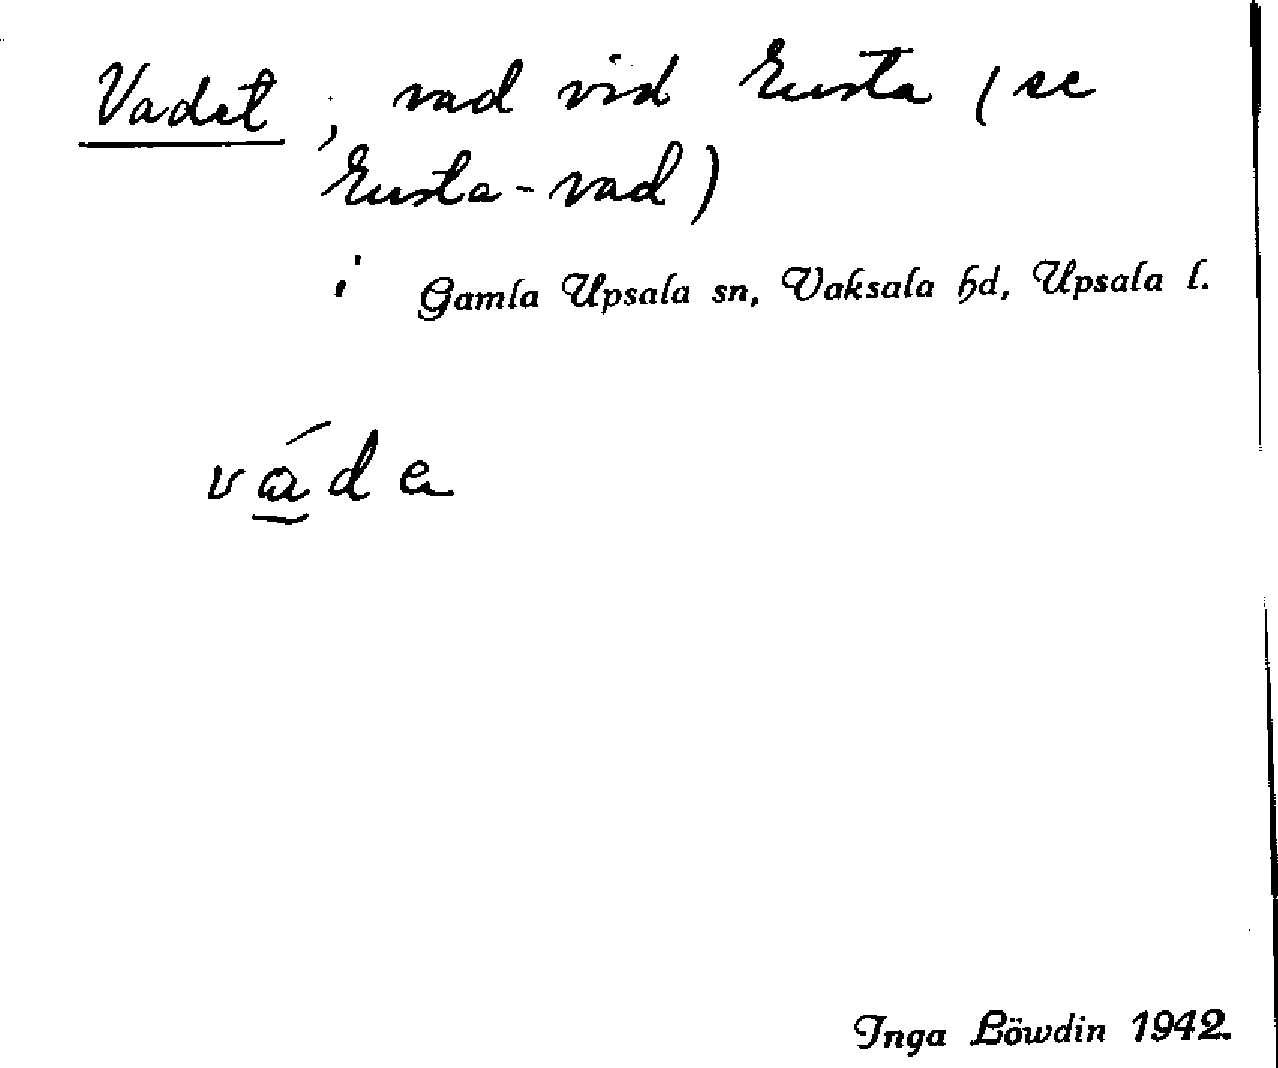 Vadet, vad vid Ensta (se
Ensta-vad)
i Gamla Upsala sn, Vaksala hd, Upsala l.
vá̱da
Inga Löwdin 1942.